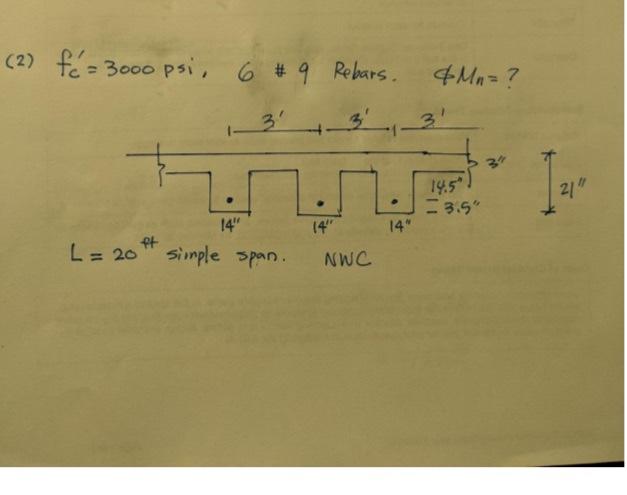 (2) fc' = 3000 psi, 6 # 9 Rebars. ϕMn = ?
3' 3' 3'
3"
14.5"
21"
3.5"
14" 14" 14"
L = 20 ft simple span. NWC